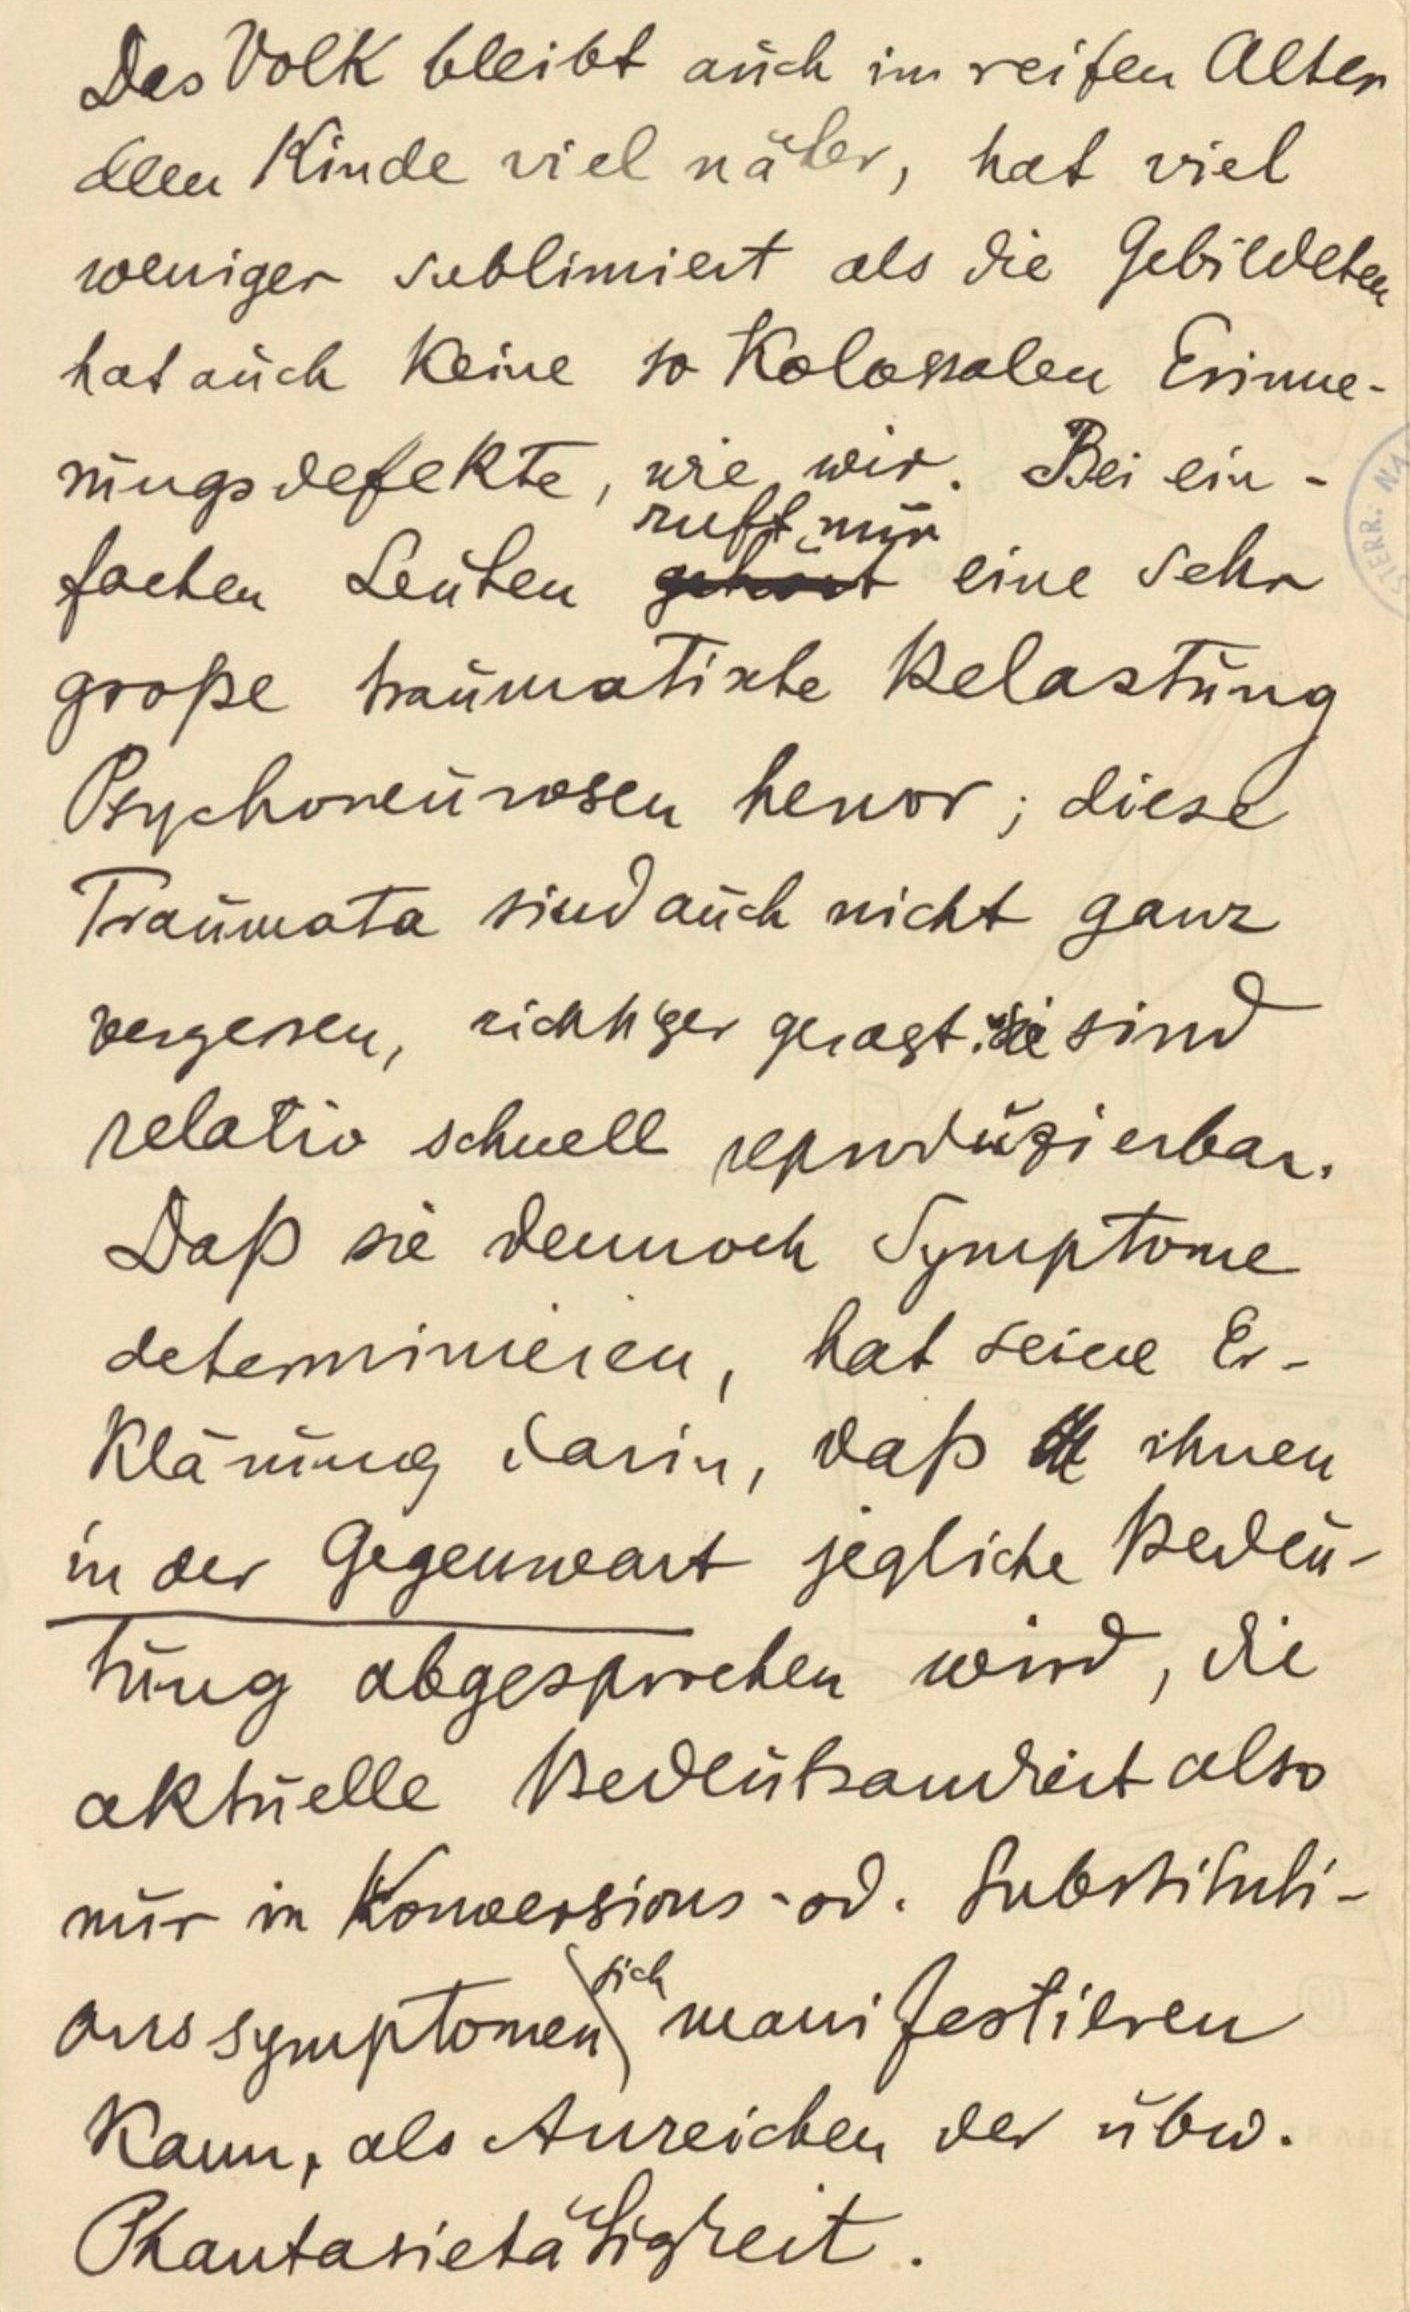 Das Volk bleibt auch im reifen Alter
dem Kinde viel näher, hat viel
weniger sublimiert als die Gebildeten
hat auch keine so kolossalen Erinne-
rungsdefekte, wie wir. Bei ein-
ruft nur
fachen Leuten gehört eine sehr
große traumatische Belastung
Psychoneurosen hervor; diese
Traumata sind auch nicht ganz
vergessen, richtiger gesagt: sie sind
relativ schnell reproduzierbar.
Daß sie dennoch Symptome
determinieren, hat seine Er-
klärung darin, daß ihnen
in der Gegenwart jegliche Bedeu-
tung abgesprochen wird, die
aktuelle Bedeutsamkeit also
nur in Konversions- od. Substituti-
sich
onssymptomen manifestieren
kann, als Anzeichen der übw.
Phantasietätigkeit.